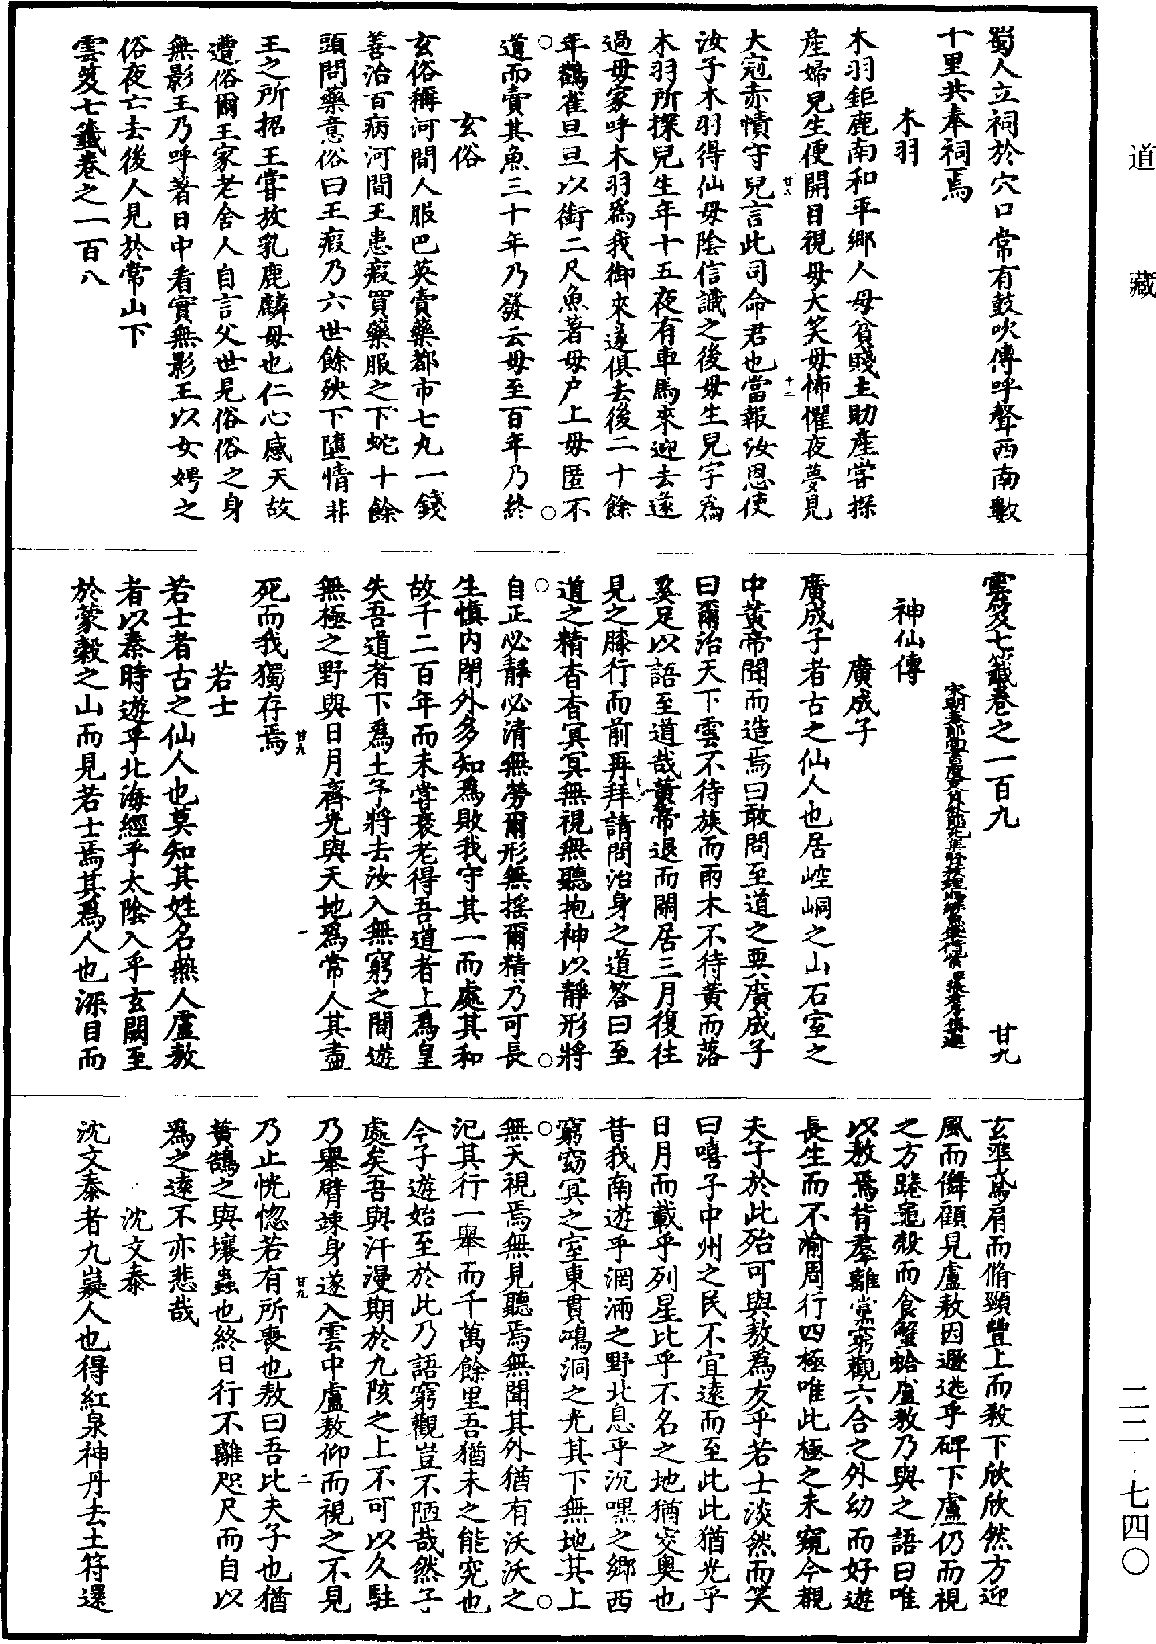 道藏
蜀人立祠於穴口常有鼓吹傳呼聲西南數
十里共奉祠焉
木羽
木羽鉅鹿南和平鄉人母貧賤主助產嘗探
產婦兒生便開目視母大笑母怖懼夜夢見
大冠赤幘守兒言此司命君也當報汝恩使
汝子木羽得仙母陰信識之後母生兒字爲
木羽所探兒生年十五夜有車馬來迎去遂
過母家呼木羽爲我御來遂俱去後二十餘
年鸛雀旦旦以銜二尺魚著母戶上母匿不
道而賣其魚三十年乃發云母至百年乃終
玄俗
玄俗稱河間人服巴英賣藥都市七丸一錢
善治百病河間王患瘕買藥服之下蛇十餘
頭問藥意俗曰王瘕乃六世餘殃下墮情非
王之所招王嘗放乳鹿麟母也仁心感天故
遭俗爾王家老舍人自言父世見俗俗之身
無影王乃呼著日中看實無影王以女娉之
俗夜亡去後人見於常山下
雲笈七籤卷之一百八
雲笈七籤卷之一百九 廿九
神仙傳
廣成子
廣成子者古之仙人也居崆峒之山石室之
中黃帝聞而造焉曰敢問至道之要廣成子
曰爾治天下雲不待族而雨木不待黃而落
奚足以語至道哉黃帝退而閑居三月復往
見之膝行而前再拜請問治身之道答曰至
道之精杳杳冥冥無視無聽抱神以靜形將
自正必靜必清無勞爾形無搖爾精乃可長
生慎內閉外多知爲敗我守其一而處其和
故千二百年而未嘗衰老得吾道者上爲皇
失吾道者下爲土予將去汝入無窮之間遊
無極之野與日月齊光與天地爲常人其盡
死而我獨存焉
若士
若士者古之仙人也莫知其姓名燕人盧敖
者以秦時遊乎北海經乎太陰入乎玄闕至
於蒙穀之山而見若士焉其爲人也深目而
玄準鳶肩而脩頸豐上而殺下欣欣然方迎
風而儛顧見盧敖因遯逃乎碑下盧仍而視
之方踡龜殼而食蟹蛤盧敖乃與之語曰唯
以敖焉背羣離黨窮觀六合之外幼而好遊
長生而不渝周行四極唯此極之未窺今覩
夫子於此殆可與敖爲友乎若士淡然而笑
曰嘻子中州之民不宜遠而至此此猶光乎
日月而載乎列星比乎不名之地猶突奧也
昔我南遊乎洞㵎之野北息乎沉嘿之鄉西
窮窈冥之室東貫鴻洞之光其下無地其上
無天視焉無見聽焉無聞其外猶有沃沃之
汜其行一舉而千萬餘里吾猶未之能究也
今子遊始至於此乃語窮觀豈不陋哉然子
處矣吾與汗漫期於九陔之上不可以久駐
乃舉臂竦身遂入雲中盧敖仰而視之不見
乃止恍惚若有所喪也敖曰吾比夫子也猶
黃鵠之與壤蟲也終日行不離咫尺而自以
爲之遠不亦悲哉
沈文泰
沈文泰者九嶷人也得紅泉神丹去土符還
二二 七四〇